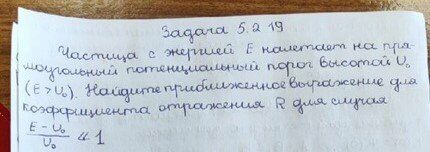 Задача 5.2.19
Частица с энергией E налетает на пря-
моугольный потенциальный порог высотой U₀
(E > U₀). Найдите приближенное выражение для
коэффициента отражения R для случая
(E - U₀)/U₀ ≪ 1